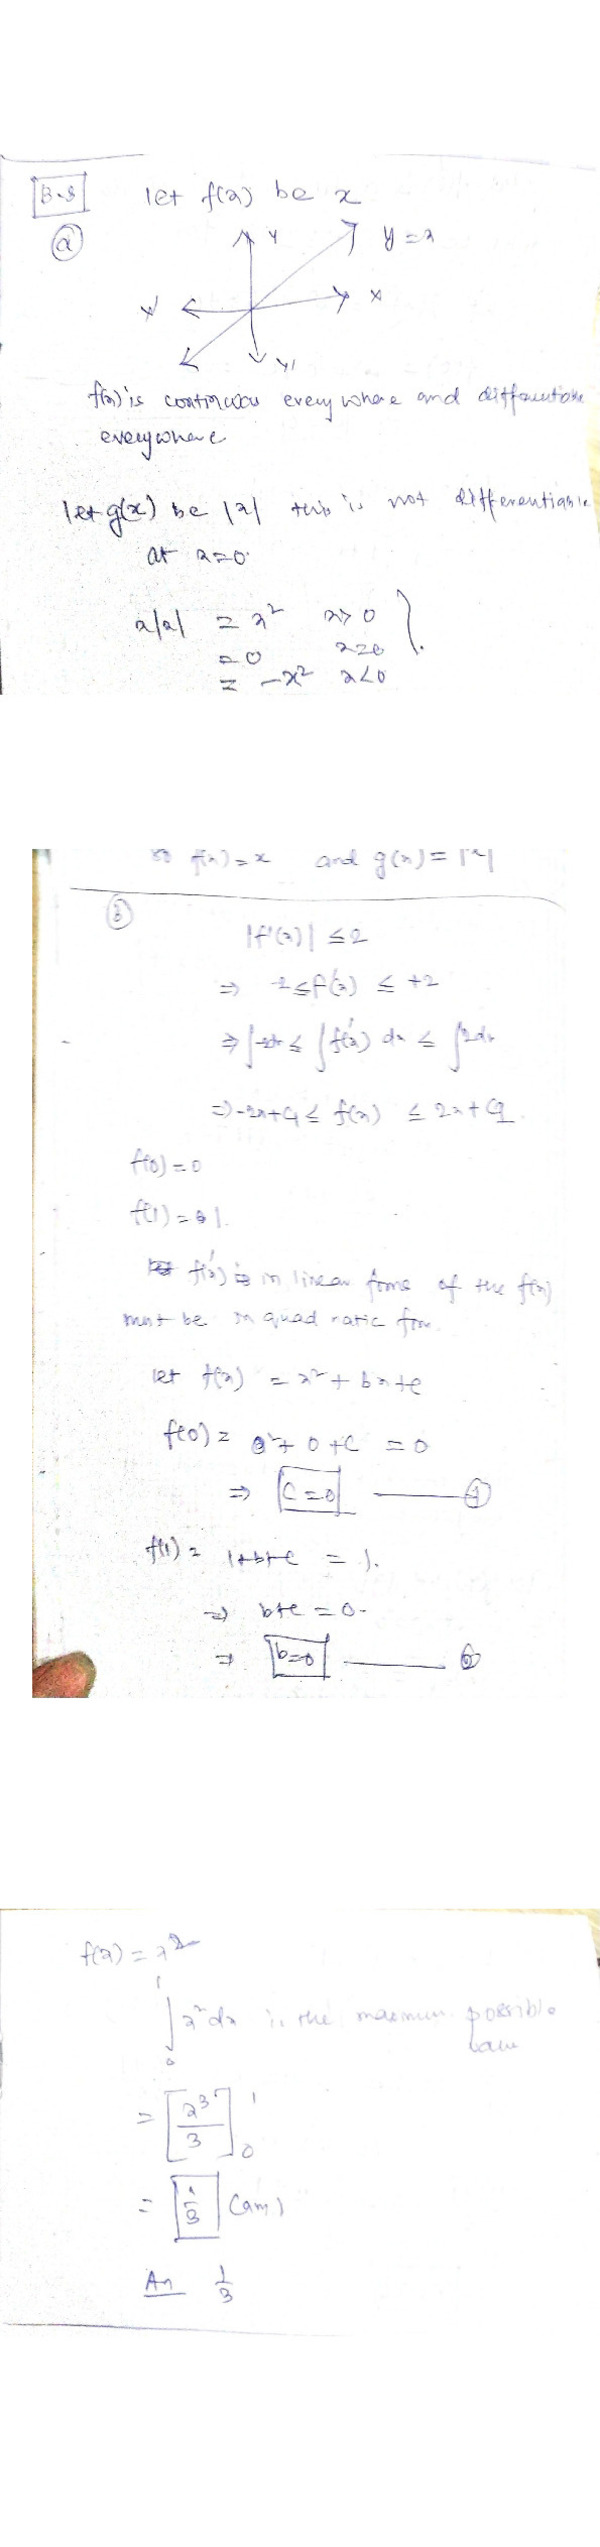 B-8 let f(x) be x
(a) Y y = x
X' X
Y'
f(x) is continuous everywhere and differentiable
everywhere
let g(x) be |x| this is not differentiable
at x=0.
x|x| = x² x>0
= 0 x=0
= -x² x<0
so f(x) = x and g(x) = |x|
(b)
|f'(x)| ≤ 2
⇒ -2 ≤ f'(x) ≤ +2
⇒ ∫-2dx ≤ ∫f'(x) dx ≤ ∫2dx
⇒ -2x+C₁ ≤ f(x) ≤ 2x+C₂
f(0) = 0
f(1) = 1.
f'(x) is in linear form of the f(x)
must be in quadratic form.
let f(x) = x² + bx + c
f(0) = 0²+ 0 + C = 0
⇒ C = 0 ①
f(1) = 1+b+c = 1.
⇒ b+c = 0.
⇒ b=0 ②
f(x) = x²
∫₀¹ x² dx is the maximum possible
= [x³/3]₀¹
= 1/3 (ans)
An 1/3